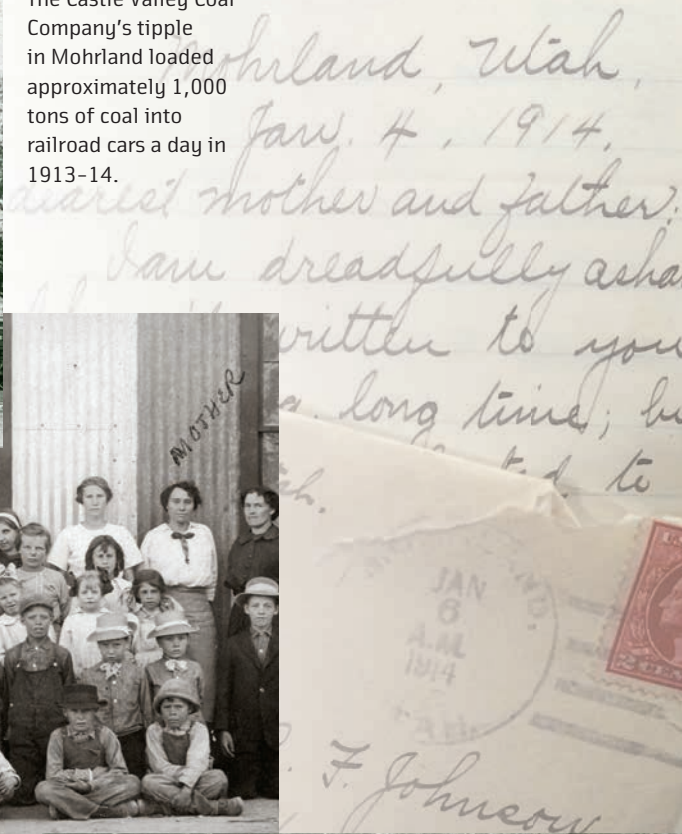 The Castle Valley Coal
Company's tipple
in Mohrland loaded
approximately 1,000
tons of coal into
railroad cars a day in
1913–14.
Mohrland, Utah,
Jan. 4, 1914.
dearest mother and father:
I am dreadfully asha
written to you
a long time; bu
to
MOTHER
JAN
6
A.M.
1914
F. Johnson